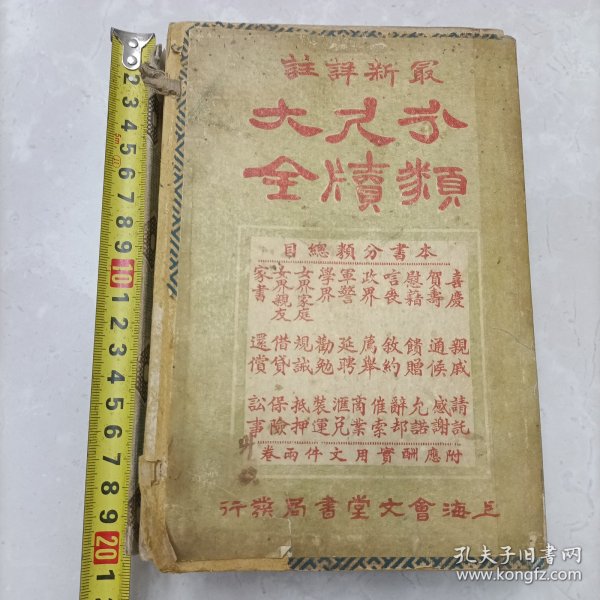 最新詳註
分類
尺牘
大全
本書分類總目
喜慶 賀壽 慰藉 唁喪 政界 軍警 學界 女界家庭 女界親友 家書
親戚 通候 餽贈 敘約 薦舉 延聘 勸勉 規誡 借貸 還償
請託 感謝 允諾 辭却 催索 商業 滙兌 裝運 抵押 保險 訟事
附應酬實用文件兩卷
上海會文堂書局發行
2 3 4 5 6 7 8 9 10 1 2 3 4 5 6 7 8 9 20 1
孔夫子旧书网
www.kongfz.com